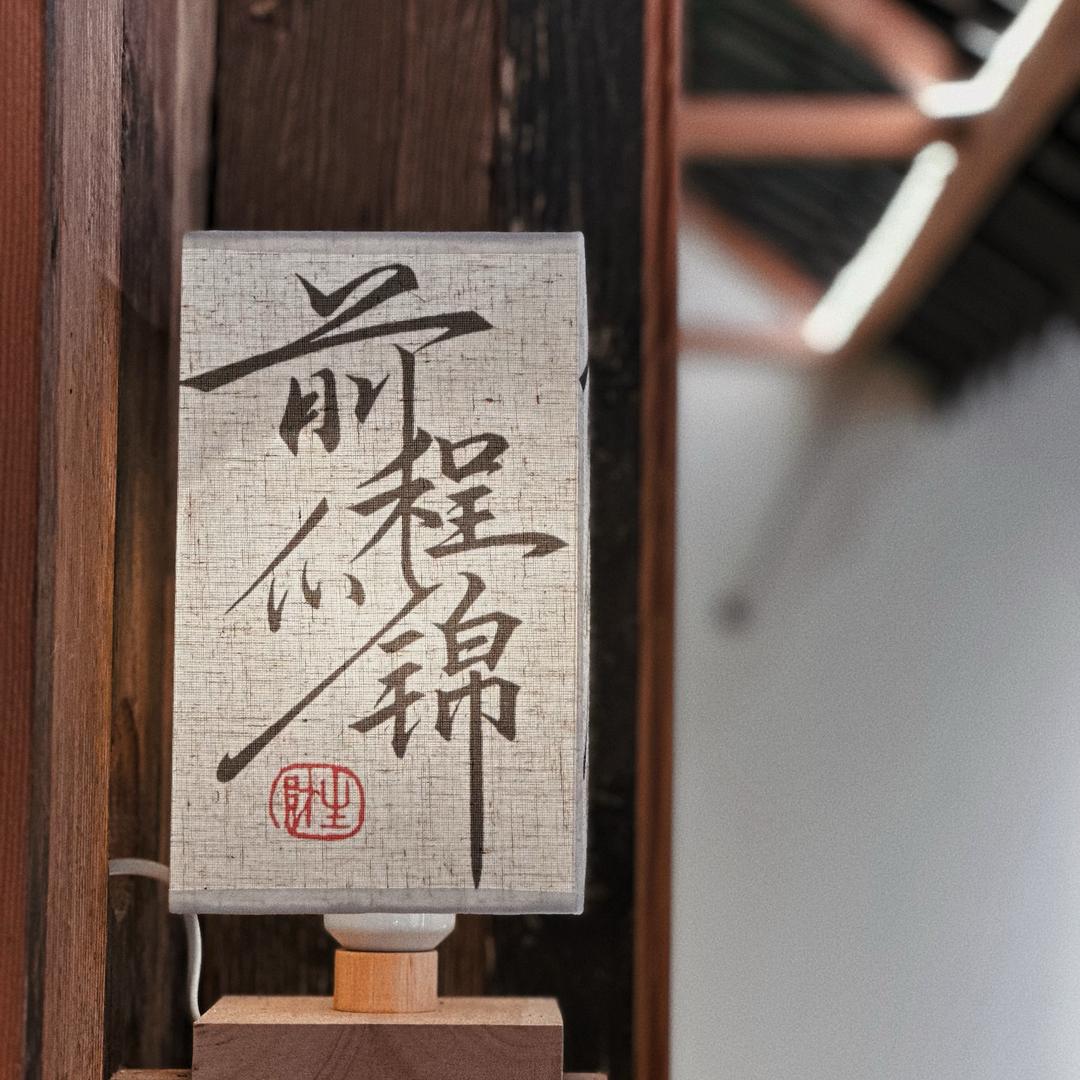 前程似锦
生財